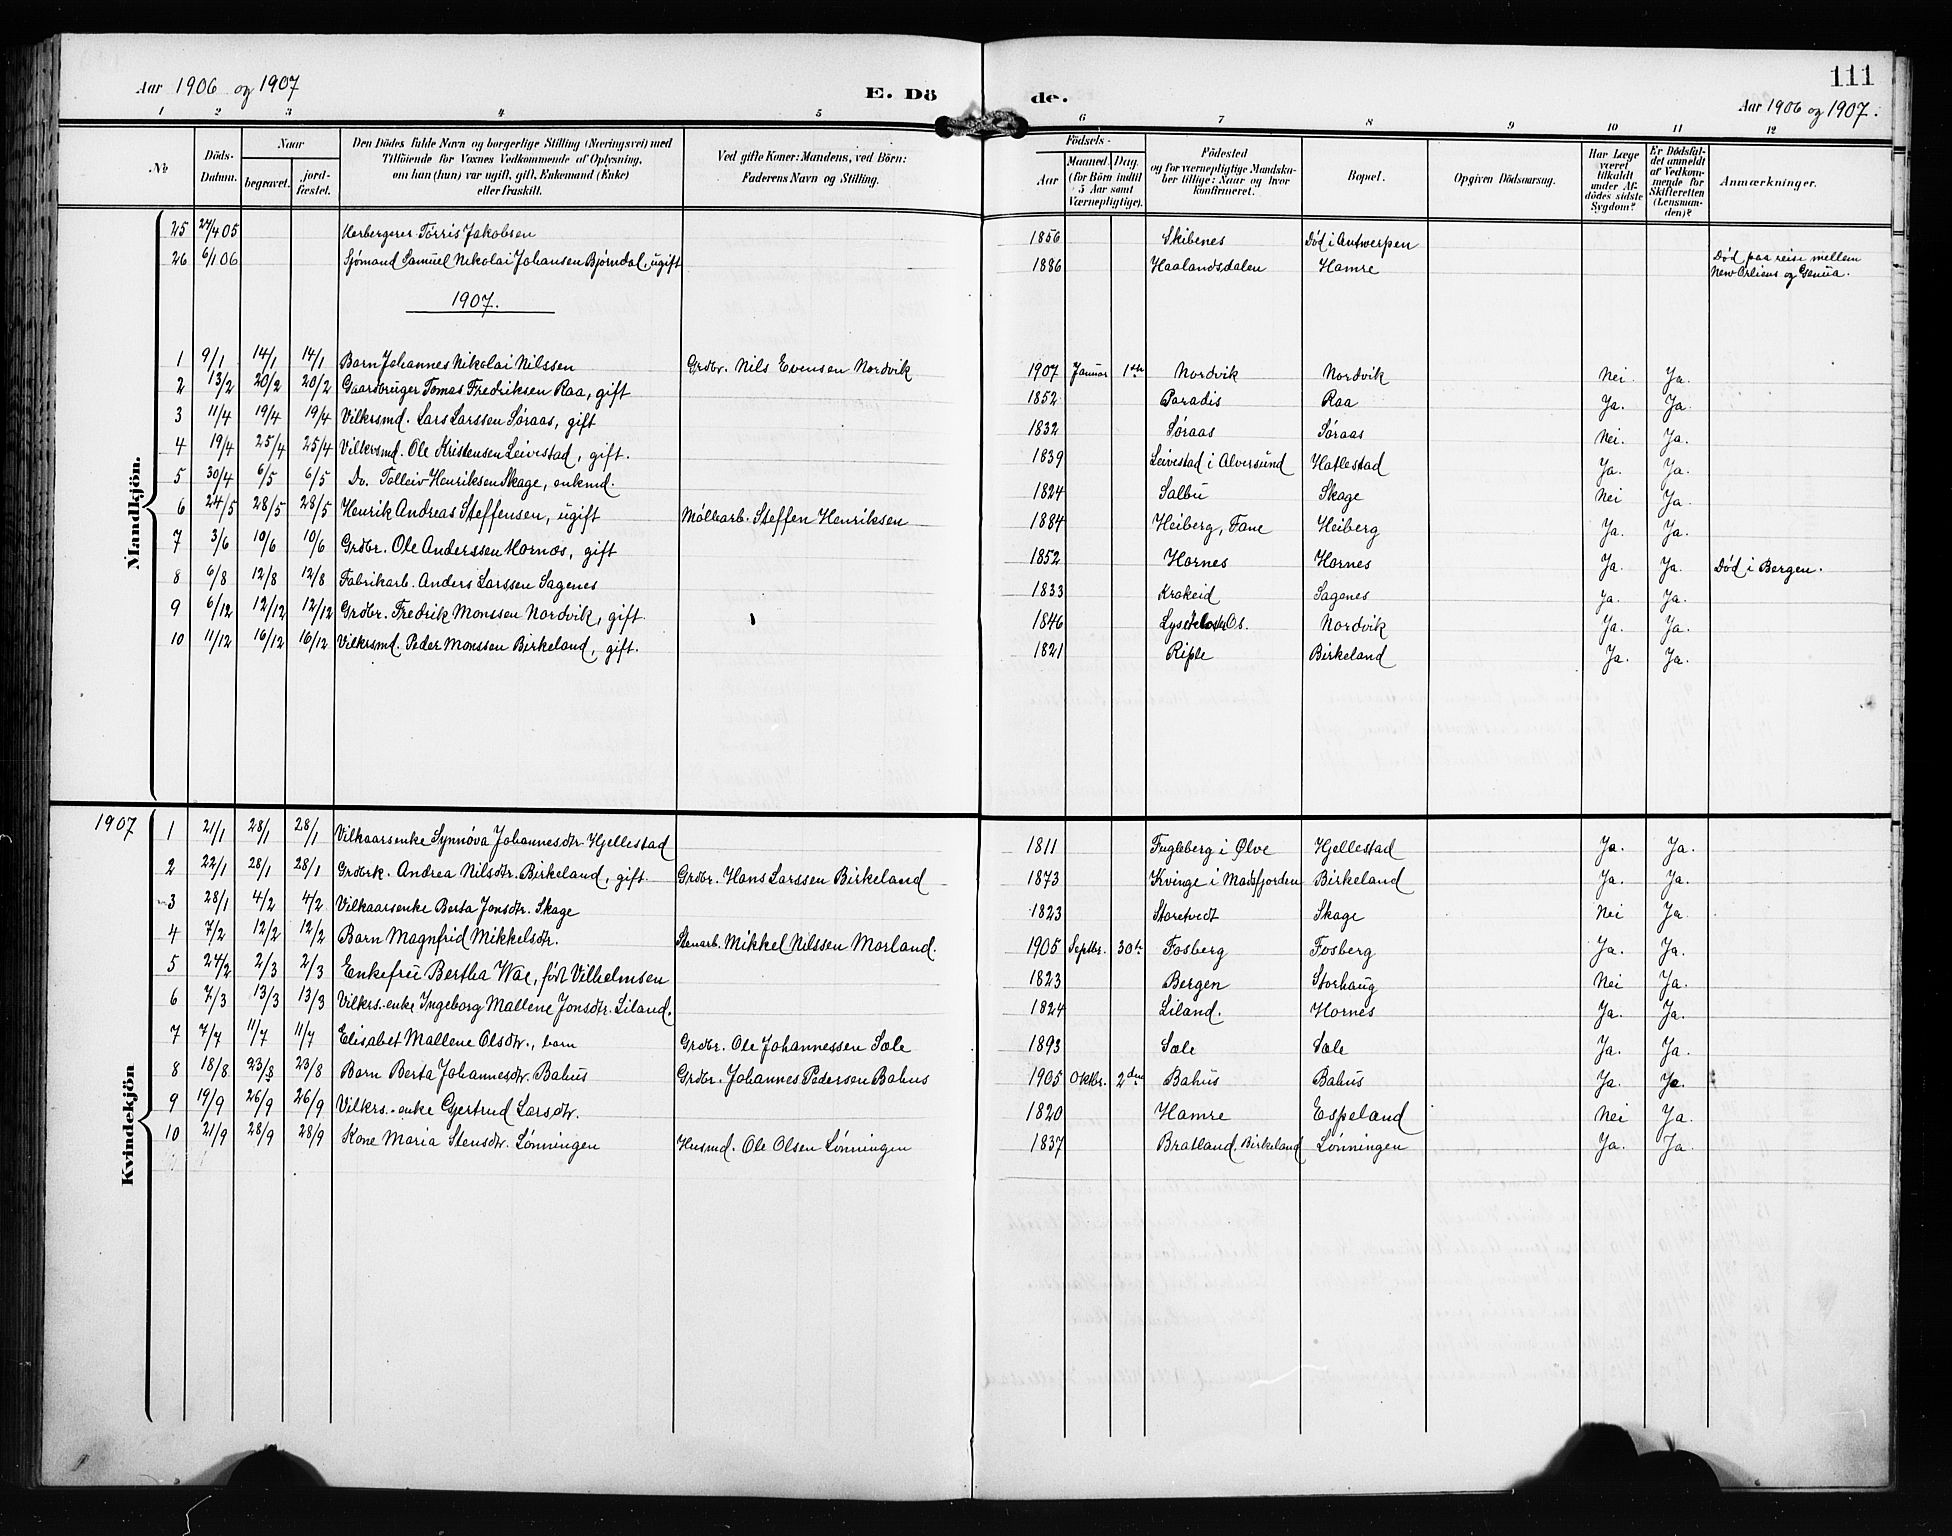 111
Aar 1906 og 1907
E. Dö de.
Aar 1906 og 1907.
1 2 3 4 5 6 7 8 9 10 11 12
No
Döds-Datum.
Naar
begravet.
jord-fæstet.
Den Dödes fulde Navn og borgerlige Stilling (Næringsvei) med
Tilföiende for Voxnes Vedkommende af Oplysning,
om han (hun) var ugift, gift, Enkemand (Enke)
eller fraskilt.
Ved gifte Koner: Mandens, ved Börn:
Faderens Navn og Stilling.
Födsels-
Aar
Maaned. Dag.
(for Börn indtil
5 Aar samt
Værnepligtige).
Födested
og for værnepligtige Mandska-
ber tillige: Naar og hvor
konfirmeret.
Bopæl.
Opgiven Dödsaarsag.
Har Læge
været
tilkaldt
under Af-
dödes sidste
Sygdom?
Er Dödsfal-
det anmeldt
af Vedkom-
mende for
Skifteretten
(Lensman-
den)?
Anmærkninger.
Mandkjön.
25 24/4 05 Herbergerer Tørris Jakobsen 1856 Skibenes Død i Antwerpen
26 6/1 06 Sjømand Samuel Nikolai Johansen Bjørndal, ugift 1886 Haalandsdalen Hamre Død paa reise mellem
New Orliens og Genua.
1907.
1 9/1 14/1 14/1 Barn Johannes Nikolai Nilssen Grdbr. Nils Evensen Nordvik 1907 Januar 1ste Nordvik Nordvik Nei. Ja.
2 13/2 20/2 20/2 Gaardbruger Tomas Fredriksen Raa, gift 1852 Paradis Raa Ja. Ja.
3 11/4 19/4 19/4 Vilkrsmd. Lars Larssen Søraas, gift 1832 Søraas Søraas Nei. Ja.
4 19/4 25/4 25/4 Vilkrsmd. Ole Kristensen Leivestad, gift. 1839 Leivestad i Alversund Hatlestad Ja. Ja.
5 30/4 6/5 6/5 Do. Tolleiv Henriksen Skage, enkmd. 1824 Salbu Skage Nei Ja.
6 24/5 28/5 28/5 Henrik Andreas Steffensen, ugift Møllearb. Steffen Henriksen 1884 Heiberg, Fane Heiberg Ja. Ja.
7 3/6 10/6 10/6 Grdbr. Ole Anderssen Hornes, gift 1852 Hornes Hornes Ja. Ja. Død i Bergen.
8 6/8 12/8 12/8 Fabrikarb. Anders Larssen Sagenes 1833 Krokeid Sagenes Ja. Ja.
9 6/12 12/12 12/12 Grdbr. Fredrik Monssen Nordvik, gift. 1846 Lysekloster Os. Nordvik Ja. Ja.
10 11/12 16/12 16/12 Vilkrsmd. Peder Monssen Birkeland, gift. 1821 Riple Birkeland Ja. Ja.
Kvindekjön
1907
1 21/1 28/1 28/1 Vilkaarsenke Synnøva Johannesdtr. Hjellestad 1811 Fugleberg i Ølve Hjellestad Ja. Ja.
2 22/1 28/1 28/1 Grdbrk. Andrea Nilsdtr. Birkeland, gift Grdbr. Hans Larssen Birkeland 1873 Kvinge i Masfjorden Birkeland Ja. Ja.
3 28/1 4/2 4/2 Vilkaarsenke Berta Jonsdtr. Skage 1823 Storetvedt Skage Nei Ja
4 7/2 12/2 12/2 Barn Magnfrid Mikkelsdtr. Stenarb. Mikkel Nilssen Morland. 1905 Septbr. 30te Fosberg Fosberg Ja. Ja.
5 24/2 2/3 2/3 Enkefru Bertha Wae, født Vilhelmsen 1823 Bergen Storhaug Nei Ja.
6 7/3 13/3 13/3 Vilkrs.-enke Ingeborg Mallene Jonsdtr. Liland. 1824 Liland. Hornes Ja. Ja.
7 7/4 11/7 11/7 Elisabet Mallene Olsdtr., barn Grdbr. Ole Johannessen Sæle 1893 Sæle Sæle Ja. Ja.
8 18/8 23/8 23/8 Barn Berta Johannesdtr. Bahus Grdbr. Johannes Pedersen Bahus 1905 Oktbr. 2den Bahus Bahus Ja. Ja.
9 19/9 26/9 26/9 Vilkrs.-enke Gjertrud Larsdtr. 1820 Hamre Espeland Nei Ja.
10 21/9 28/9 28/9 Kone Maria Stensdtr. Lønningen Husmd. Ole Olsen Lønningen 1837 Bratland, Birkeland Lønningen Ja. Ja.